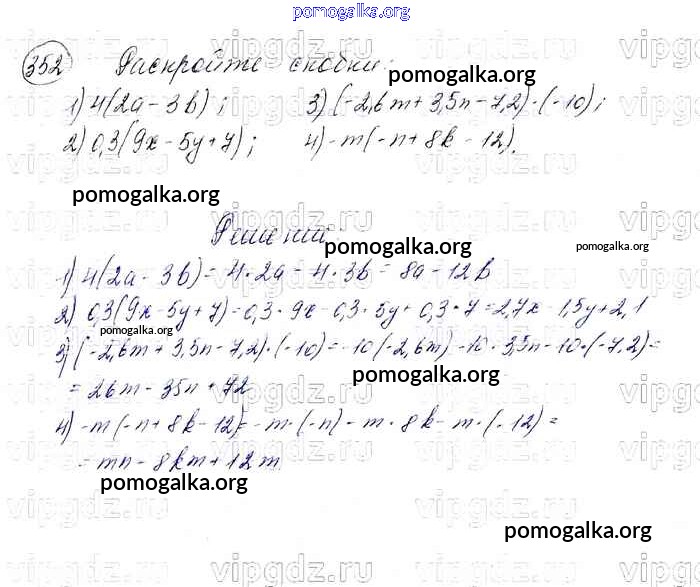 pomogalka.org
352 Раскройте скобки:
pomogalka.org
1) 4(2a - 3b); 3) (-2,6m + 3,5n - 7,2)·(-10);
2) 0,3(9x - 5y + 7); 4) -m(-n + 8k - 12).
pomogalka.org
Решение:
pomogalka.org
pomogalka.org
1) 4(2a - 3b) = 4·2a - 4·3b = 8a - 12b
2) 0,3(9x - 5y + 7) = 0,3·9x - 0,3·5y + 0,3·7 = 2,7x - 1,5y + 2,1
pomogalka.org
3) (-2,6m + 3,5n - 7,2)·(-10) = -10(-2,6m) - 10·3,5n - 10·(-7,2) =
pomogalka.org
= 26m - 35n + 72
4) -m(-n + 8k - 12) = -m·(-n) - m·8k - m·(-12) =
= mn - 8km + 12m
pomogalka.org
pomogalka.org
vipgdz.ru